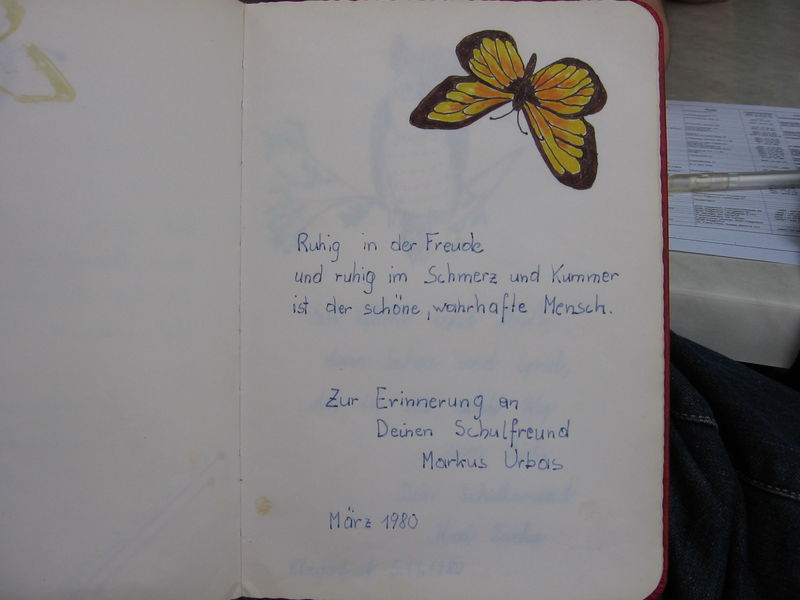 Ruhig in der Freude
und ruhig im Schmerz und Kummer
ist der schöne, wahrhafte Mensch.
Zur Erinnerung an
Deinen Schulfreund
Markus Urbas
März 1980